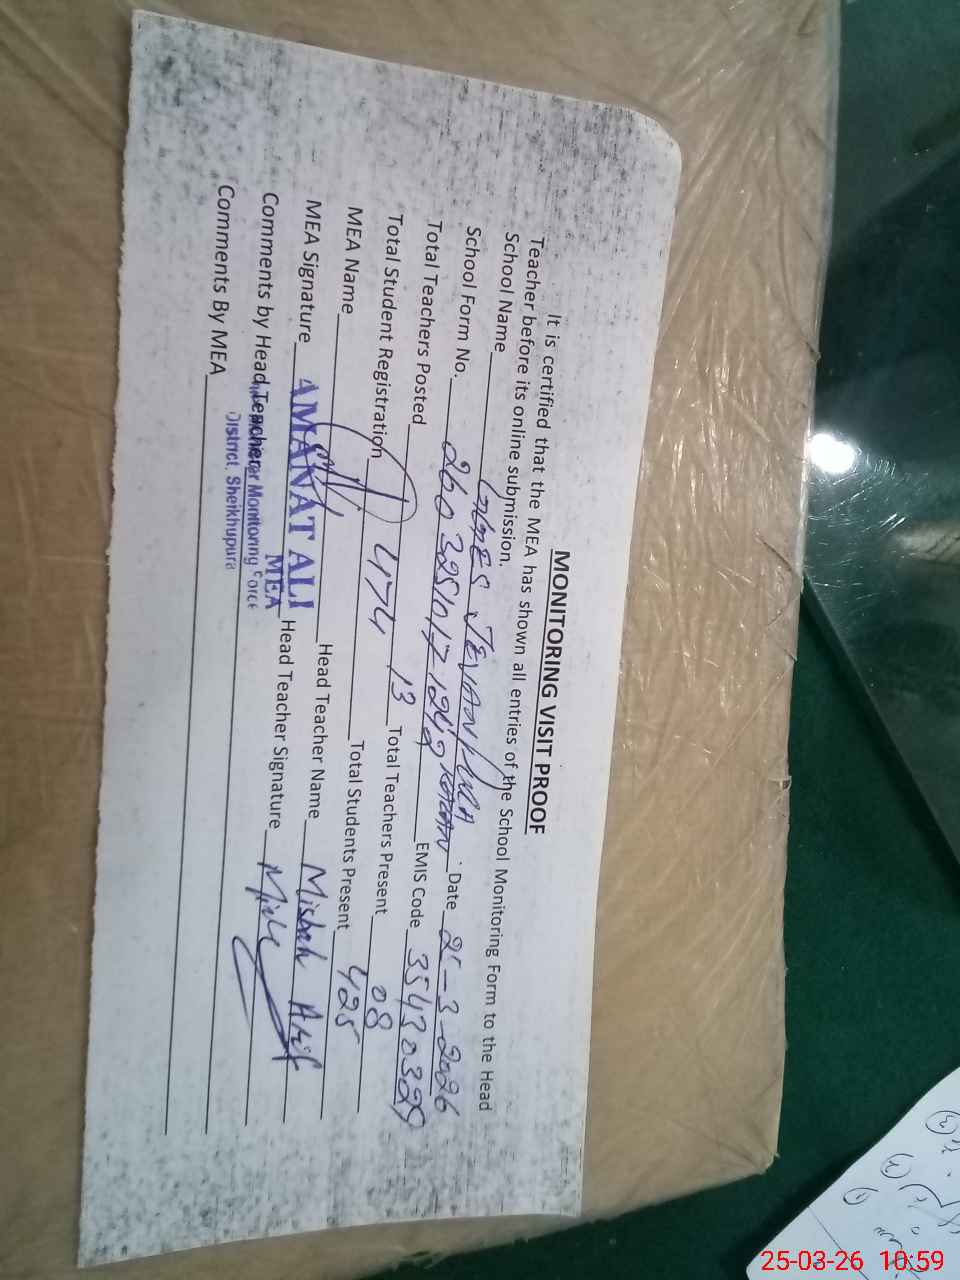 MONITORING VISIT PROOF
It is certified that the MEA has shown all entries of the School Monitoring Form to the Head
Teacher before its online submission.
School Name GGES
School Form No. Date 25-3-2026
Total Teachers Posted 13 EMIS Code 35430329
Total Student Registration 474 Total Teachers Present 08
MEA Name Total Students Present 425
MEA Signature Head Teacher Name Misbah Arif
AMANAT ALI
MEA
Monitoring Force
District. Sheikhupura
Comments by Head Teacher Head Teacher Signature
Comments By MEA
25-03-26 10:59